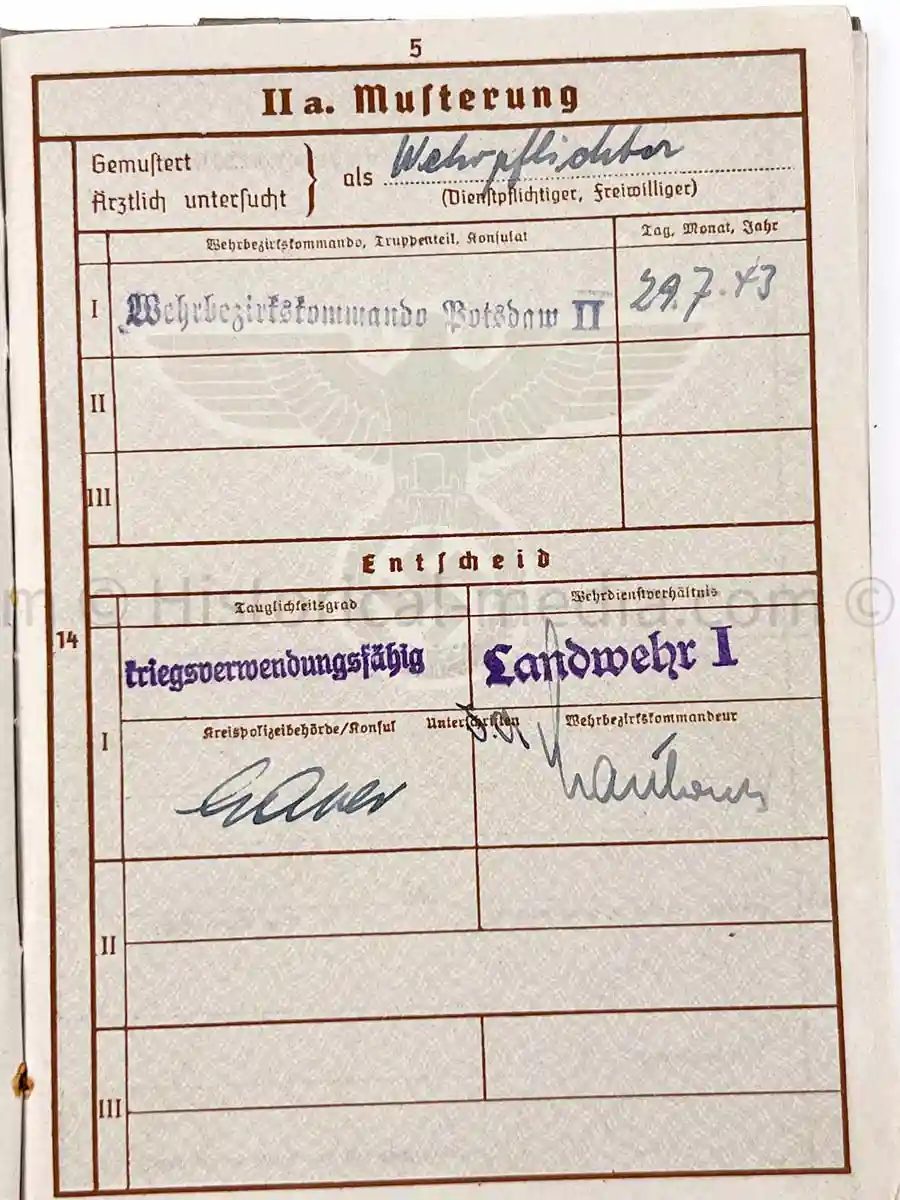 5
II a. Musterung
Gemustert
Ärztlich untersucht
als Wehrpflichter
(Dienstpflichtiger, Freiwilliger)
Wehrbezirkskommando, Truppenteil, Konsulat
Tag, Monat, Jahr
I Wehrbezirkskommando Potsdam II 29.7.43
II
III
Entscheid
Tauglichkeitsgrad Wehrdienstverhältnis
14
kriegsverwendungsfähig Landwehr I
Kreispolizeibehörde/Konsul Unterschriften Wehrbezirkskommandeur
I
II
III
m © Historical-media.com ©